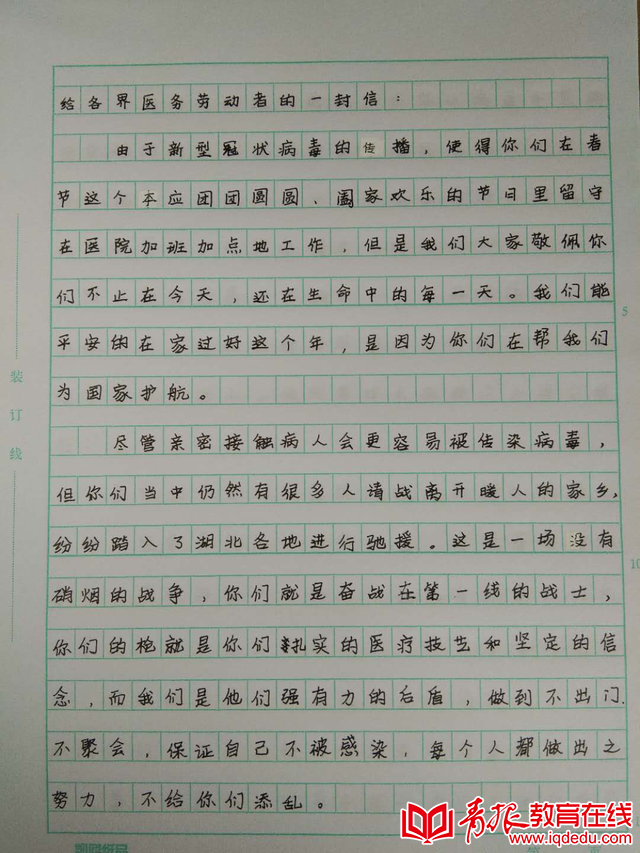 给各界医务劳动者的一封信：
由于新型冠状病毒的传播，使得你们在春
节这个本应团团圆圆、阖家欢乐的节日里留守
在医院加班加点地工作，但是我们大家敬佩你
们不止在今天，还在生命中的每一天。我们能
平安的在家过好这个年，是因为你们在帮我们
为国家护航。
尽管亲密接触病人会更容易被传染病毒，
但你们当中仍然有很多人请战离开暖人的家乡，
纷纷踏入了湖北各地进行驰援。这是一场没有
硝烟的战争，你们就是奋战在第一线的战士，
你们的枪就是你们扎实的医疗技艺和坚定的信
念，而我们是他们强有力的后盾，做到不出门.
不聚会，保证自己不被感染，每个人都做出之
努力，不给你们添乱。
装
订
线
5
10
青报教育在线
www.iqdedu.com